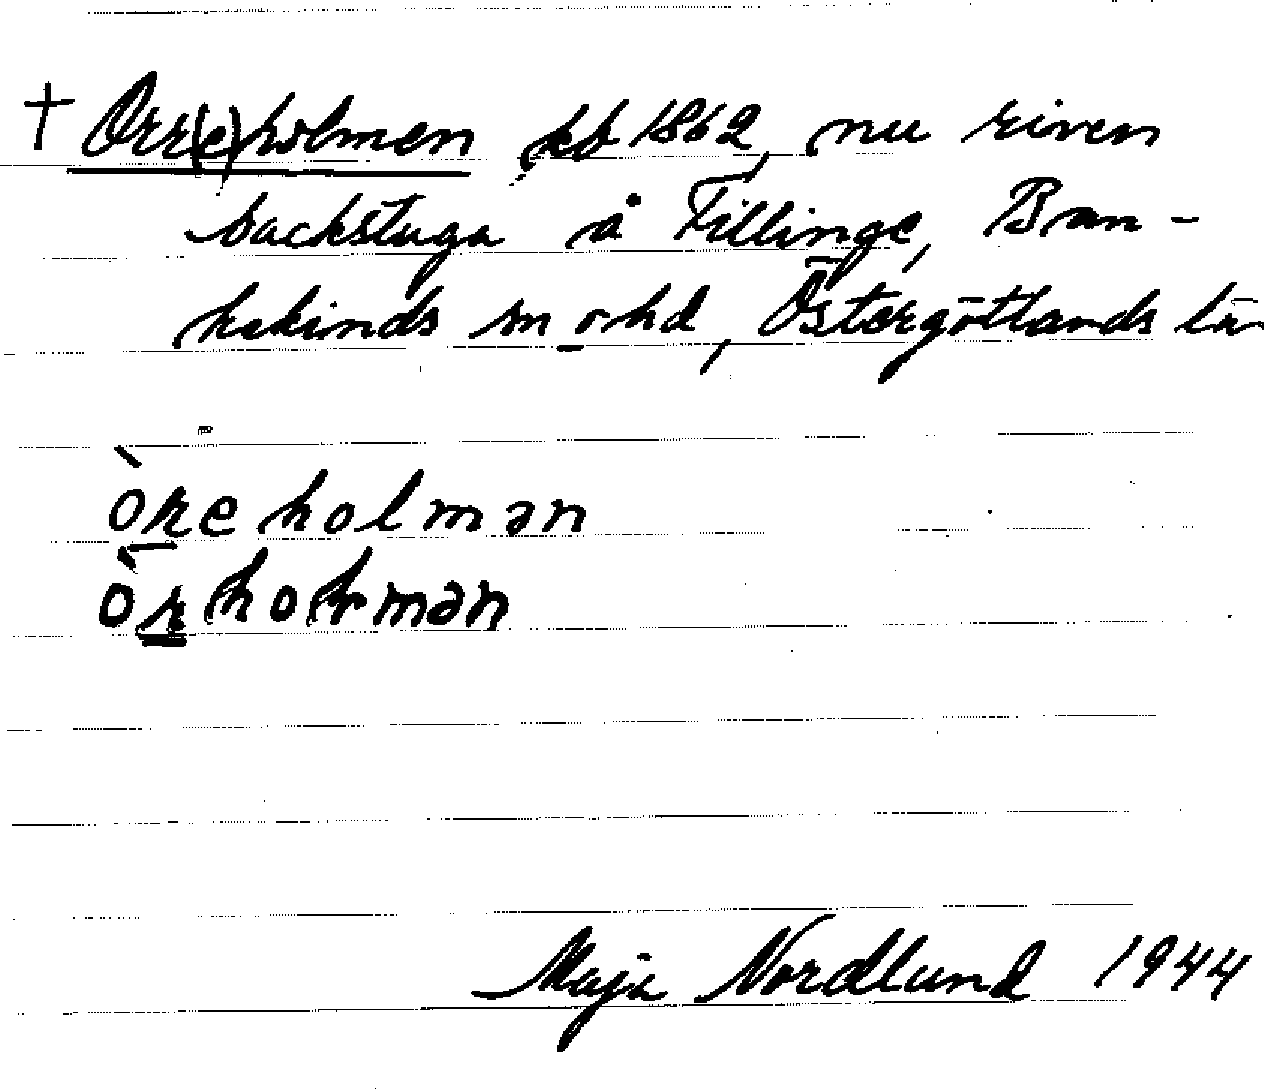 † Orr(e)holmen kb 1862, nu riven
backstuga å Fillinge, Ban-
kekinds sn o hd, Östergötlands lä
òreholmən
òrhoɫmən
Maja Nordlund 1944